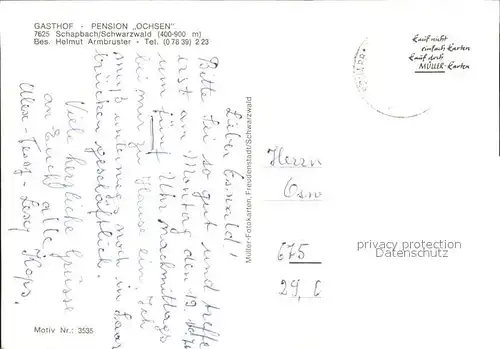 GASTHOF - PENSION „OCHSEN"
7625 Schapbach/Schwarzwald (400-900 m)
Bes. Helmut Armbruster - Tel. (0 78 39) 2 23
Kauf nicht
einfach Karten
Kauf doch
MÜLLER-Karten
Lieber Oswald!
Bitte sei so gut und treffe
erst am Montag den 19.
um fünf Uhr nachmittags
bei mir zu Hause ein. Ich
muß unterwegs noch in Saar
brücken geschäftlich.
Viele herzliche Grüsse
an Euch alle,
Müller-Fotokarten, Freudenstadt/Schwarzwald
Herrn
Osw
675
29, 6
privacy protection
Datenschutz
Motiv Nr.: 3535